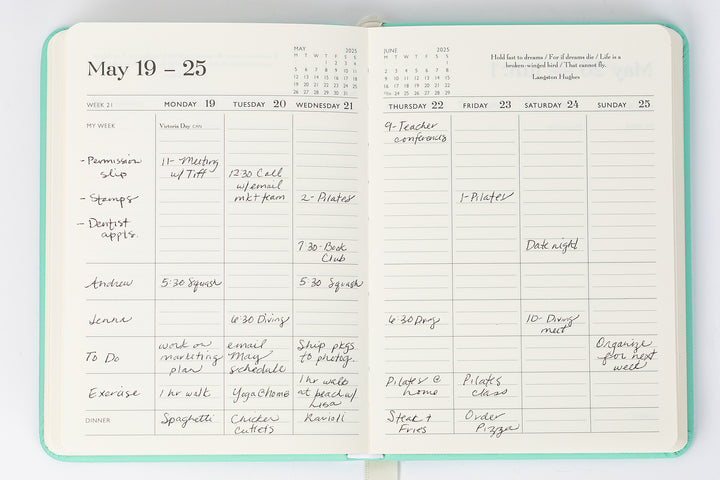 May 19 – 25
MAY 2025
M T W T F S S
1 2 3 4
5 6 7 8 9 10 11
12 13 14 15 16 17 18
19 20 21 22 23 24 25
26 27 28 29 30 31
WEEK 21
MONDAY 19
TUESDAY 20
WEDNESDAY 21
MY WEEK
Victoria Day CAN
- Permission
slip
- Stamps
- Dentist
appts.
11- Meeting
w/ Tiff
12:30 Call
w/email
mkt team
2 - Pilates
7:30- Book
Club
Andrew
5:30 Squash
5:30 Squash
Jenna
6:30 Diving
To Do
work on
marketing
plan
email
May
schedule
Ship pkgs
to photog.
Exercise
1 hr walk
Yoga @ home
1 hr walk
at beach w/
Lisa
DINNER
Spaghetti
Chicken
Cutlets
Ravioli
JUNE 2025
M T W T F S S
1
2 3 4 5 6 7 8
9 10 11 12 13 14 15
16 17 18 19 20 21 22
24 25 26 27 28 29
Hold fast to dreams / For if dreams die / Life is a
broken-winged bird / That cannot fly.
Langston Hughes
THURSDAY 22
FRIDAY 23
SATURDAY 24
SUNDAY 25
9-Teacher
conferences
1-Pilates
Date night
6:30 Diving
10- Diving
meet
Organize
for next
week
Pilates @
home
Pilates
class
Steak +
Fries
Order
Pizza